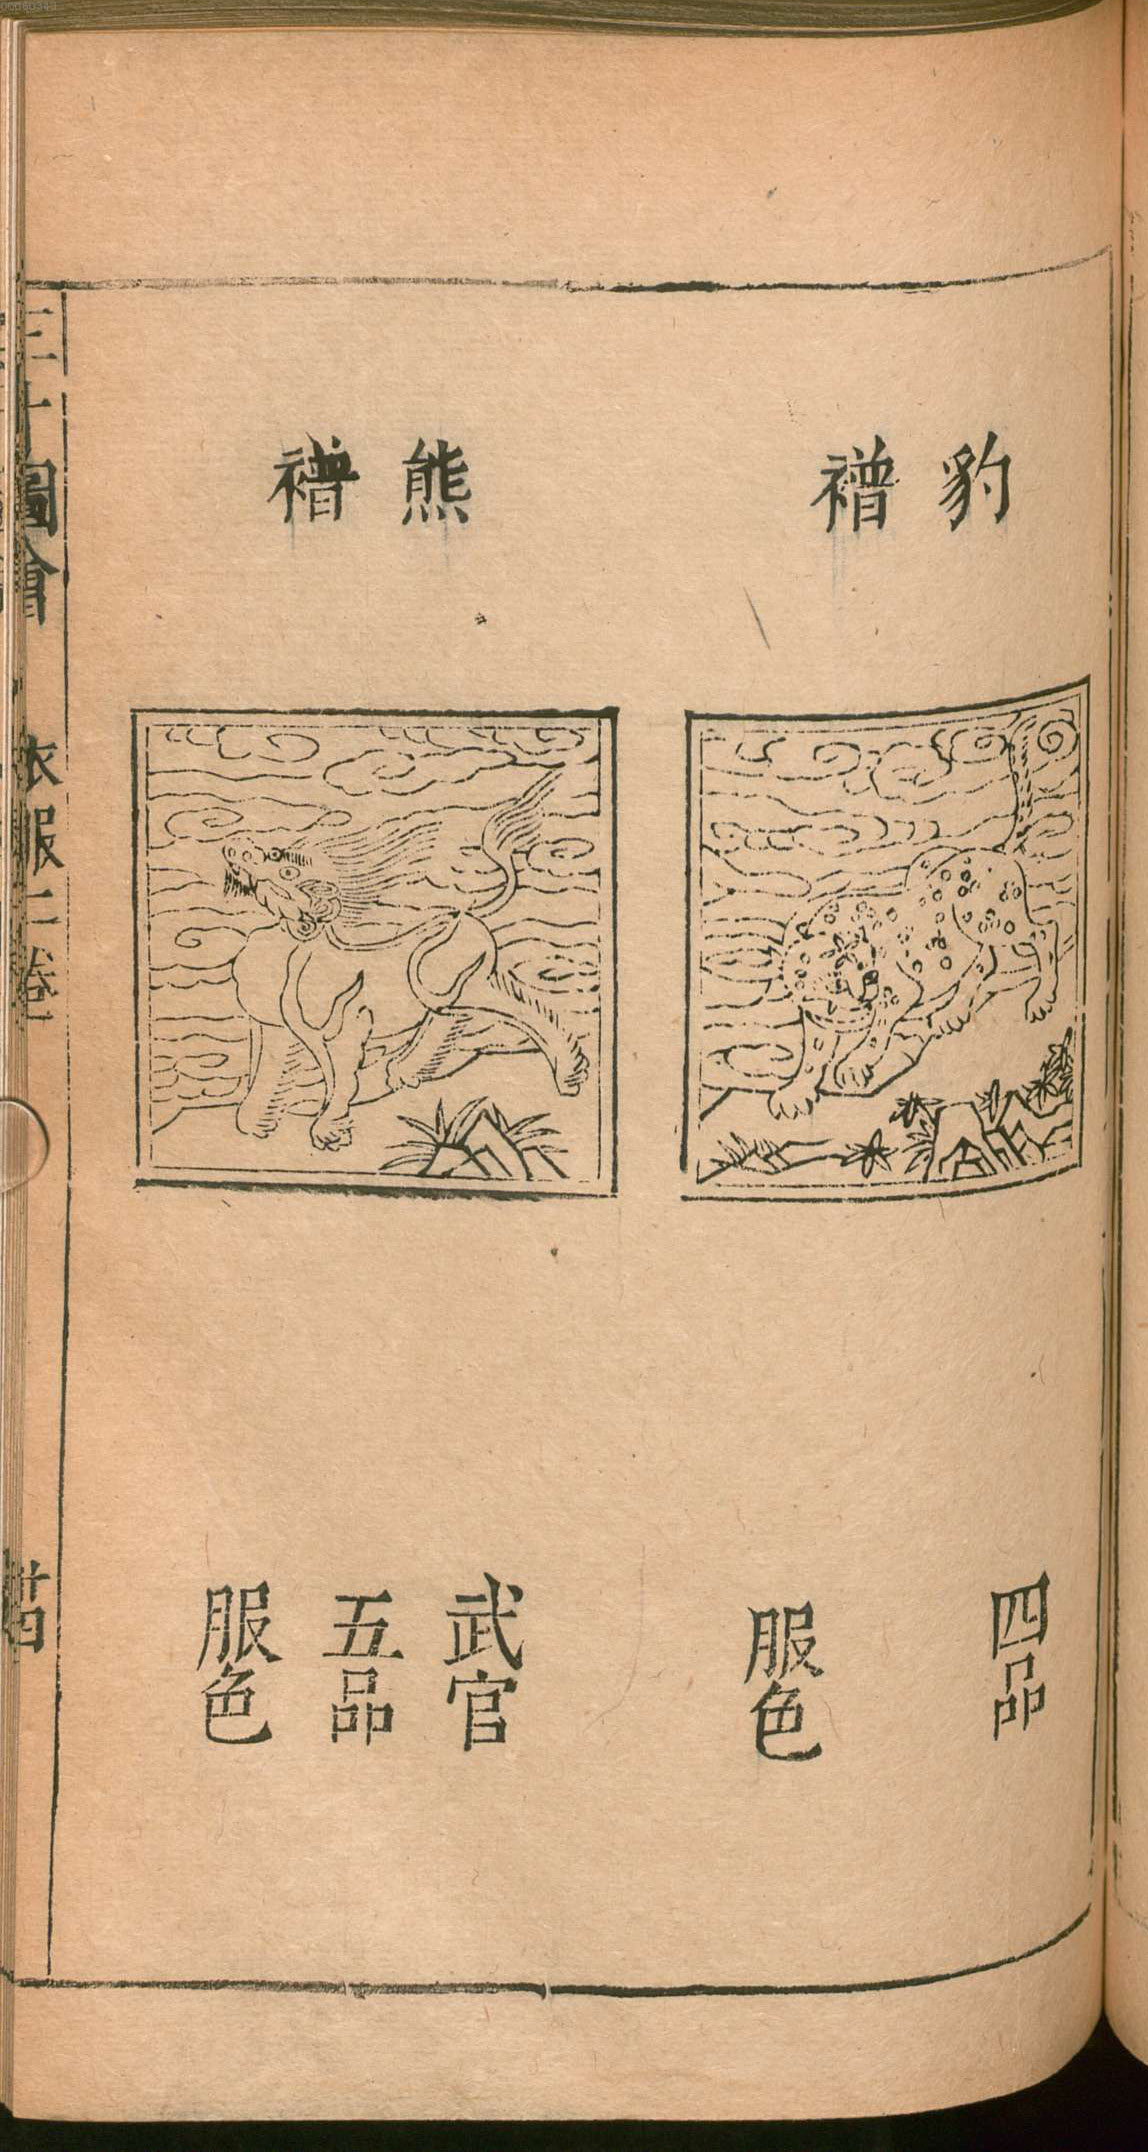 豹䙢
四品
服色
熊䙢
武官
五品
服色
三才圖會 衣服二卷